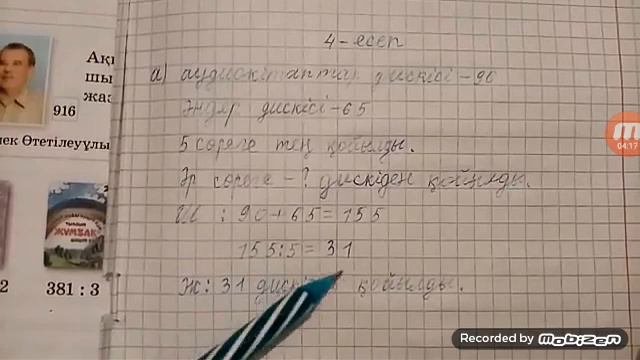 4-есеп
а) аудиокітаптар дискісі-90
Әндер дискісі-65
5 сөреге тең қойылды.
Әр сөреге - ? дискіден қойылды.
Ш: 90+65=155
155:5=31
Ж: 31 қойылды.
916
Өтетілеуұлы
ЖҰМБАҚ
2
381 : 3
04:17
Recorded by
MOBIZEN